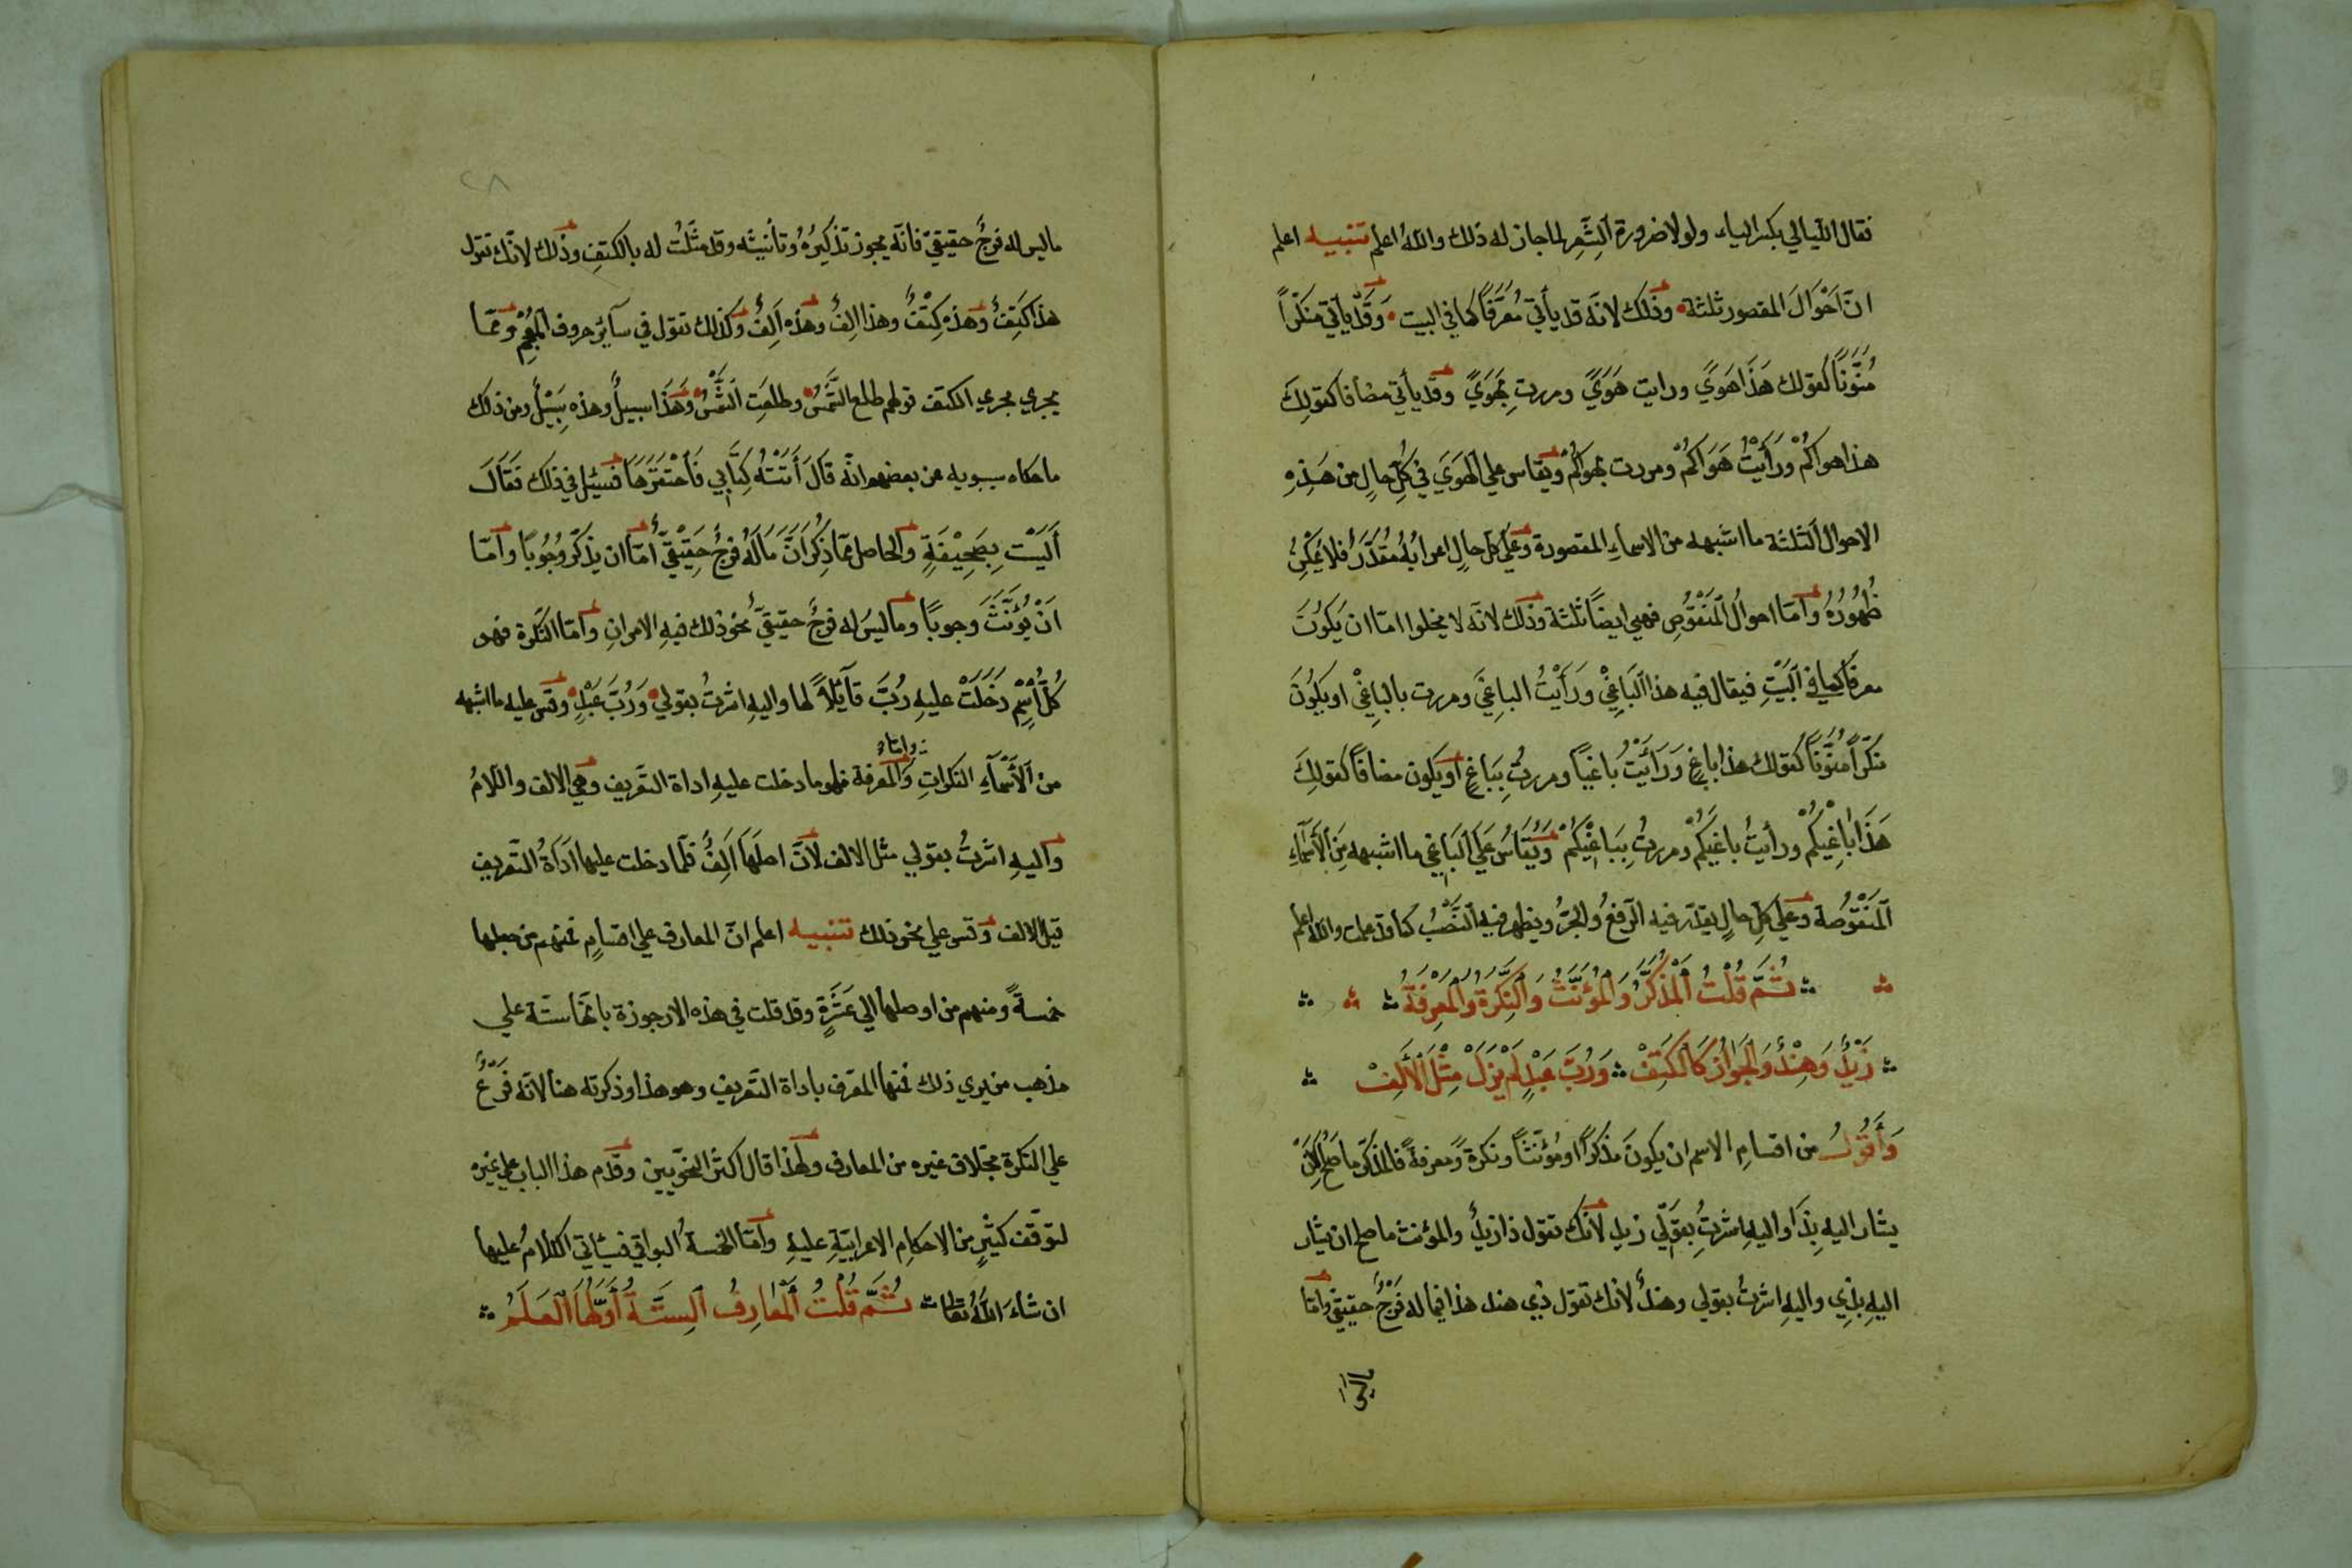 فقال اللّيالي بكسر الياء ولولا ضرورة الشّعر لما جاز له ذلك والله اعلم تنبيه اعلم
انّ احوال المقصور ثلثة وذلك لانّه قد يأتي مُعَرَّفًا كما في البيت وقد يأتي منكّرًا
مُنَوَّنًا كقولك هَذَا هَوًي ورايت هَوًي ومررتِ بِهَوًي وقد يأتي مضافا كقولِكَ
هذا هواكُمْ ورَأَيْتُ هَوَاكُمْ ومررت بهواكُمْ ويقاس علي الهَوَي في كُلِّ حالٍ من هَذِهِ
الاحوال الثلثة ما اشبهه من الاسماءِ المقصورة وعَلَي كلّ حالٍ اعرابُهُ مُقَدَّرٌ فلا يُمْكِنُ
ظُهُورُهُ وامّا احوالُ المَنْقُوصِ فهي ايضًا ثلثة وذلك لانّه لا يخلوا امّا ان يَكُونَ
معرفا كما في البَيْتِ فيقال فيه هذا البَاغِيْ ورَأَيْتُ الباغِيَ ومررت بالباغِيْ او يكُونَ
مُنَكَّرًا مُنَوَّنًا كقولك هذا باغٍ ورَأَيْتُ باغيًا ومررتُ بِبَاغٍ او يكون مضافًا كقولِكَ
هَذَا بَاغِيْكُمْ ورأيتُ باغيَكُمْ ومررتُ بِبَاغِيْكُمْ ويُقَاسُ عَلَي البَاغِي ما اشبهه مِنَ الأَسْمَآءِ
المَنْقُوصَة وعلي كل حالٍ يقدّر فيه الرّفعُ والجرُّ ويظهر فيه النَّصْبُ كما قد علمت والله اعلم
ثُمَّ قُلْتُ المُذَكَّرُ وَالمُؤَنَّثُ وَالنَّكِرَةُ وَالْمَعْرِفَةُ
زَيْدٌ وَهِنْدٌ وَالجَوَازُ كَالْكَتِفْ وَرُبَّ عَبْدٍ لَمْ يَزَلْ مِثْلَ الأَلِفْ
وَأَقُولُ من اقسامِ الاسم ان يكونَ مذكّرًا او مُؤنّثًا ونكرةً ومعرفةً فالمذكّر ما صَحَّ ان
يشار اليهِ بِذَا واليهِ اشرتُ بقولي زيد لانك تقول ذا زيدٌ والمؤنث ما صح ان يشار
اليهِ بذي واليهِ اشرتُ بقولي وهندٌ لانك تقول ذي هند هذا فيما له فَرْجٌ حقيقيّ وامّا
ماليس
ما ليس له فرجٌ حقيقيّ فانّه يجوز تذكيرُهُ وتأنيثه وقد مثّلتُ له بالكتِفِ وذلك لانّك تقول
هذا كَتِفٌ وهذه كِتْفٌ وهذا الِفٌ وهذه اَلِفٌ وكذلك تقول في سآئر حروف المُعْجَمِ وممّا
يجري مجري الكتف قولهم طلع الشَّمْسُ وطلعَتِ الشَّمْسُ وهَذَا سبيلٌ وهذه سَبِيْلٌ ومن ذلك
ما حكاه سيبويه عن بعضهم انّه قالَ أَتَتْهُ كِتَابِي فَاحْتَقَرَهَا فسئل في ذلك فَقَالَ
أَلَيْسَتْ بِصَحِيْفَةٍ والحاصل ممّا ذُكِرَ انَّ مَا لَهُ فرجٌ حَقِيْقِيّ امّا ان يذكّر وُجُوبًا وامّا
اَنْ يُؤَنَّثَ وجوبًا وما ليسَ له فرجٌ حقيقيّ نحوُ ذلك فيهِ الامرانِ وامّا النّكرة فهو
كُلُّ اسْمٍ دَخَلَتْ عليهِ رُبَّ قآئلاً لها واليهِ اشرتُ بقولي ورُبَّ عَبْدٍ وقس عليه ما اشبهه
وامّا
من الأَسْمَآءِ النكراتِ والمعرفة فهو ما دخلت عليهِ اداة التّعريف وهي الالف واللّامُ
واليهِ اشرتُ بقولي مثل الالف لانّ اصلهَا اَلِفٌ فلمّا دخلت عليها اَدَاةُ التّعريف
قيل الالف وقس علي نحو ذلك تنبيه اعلم انّ المعارف علي اقسامٍ فمنهم من جعلها
خمسةً ومنهم من اوصلها الي عَشَرَةٍ وقد قلت في هذه الارجوزة بانّها ستّة علي
مذهب من يري ذلك فمنها المعرّف باداة التّعريف وهو هذا وذكرته هنا لانّه فَرْعٌ
علي النكرة بخلاف غيره من المعارف ولهذا قال اكثر النّحويين وقدّم هذا الباب علي غيره
لتوقّف كثيرٍ من الاحكامِ الاعرابيّةِ عليهِ وامّا الخمسةُ البواقي فسياتي الكلامُ عليها
ان شاءَ اللهُ تعالي ثُمَّ قُلْتُ المَعَارِفُ السِّتَّةُ أَوَّلُهَا العَلَمُ